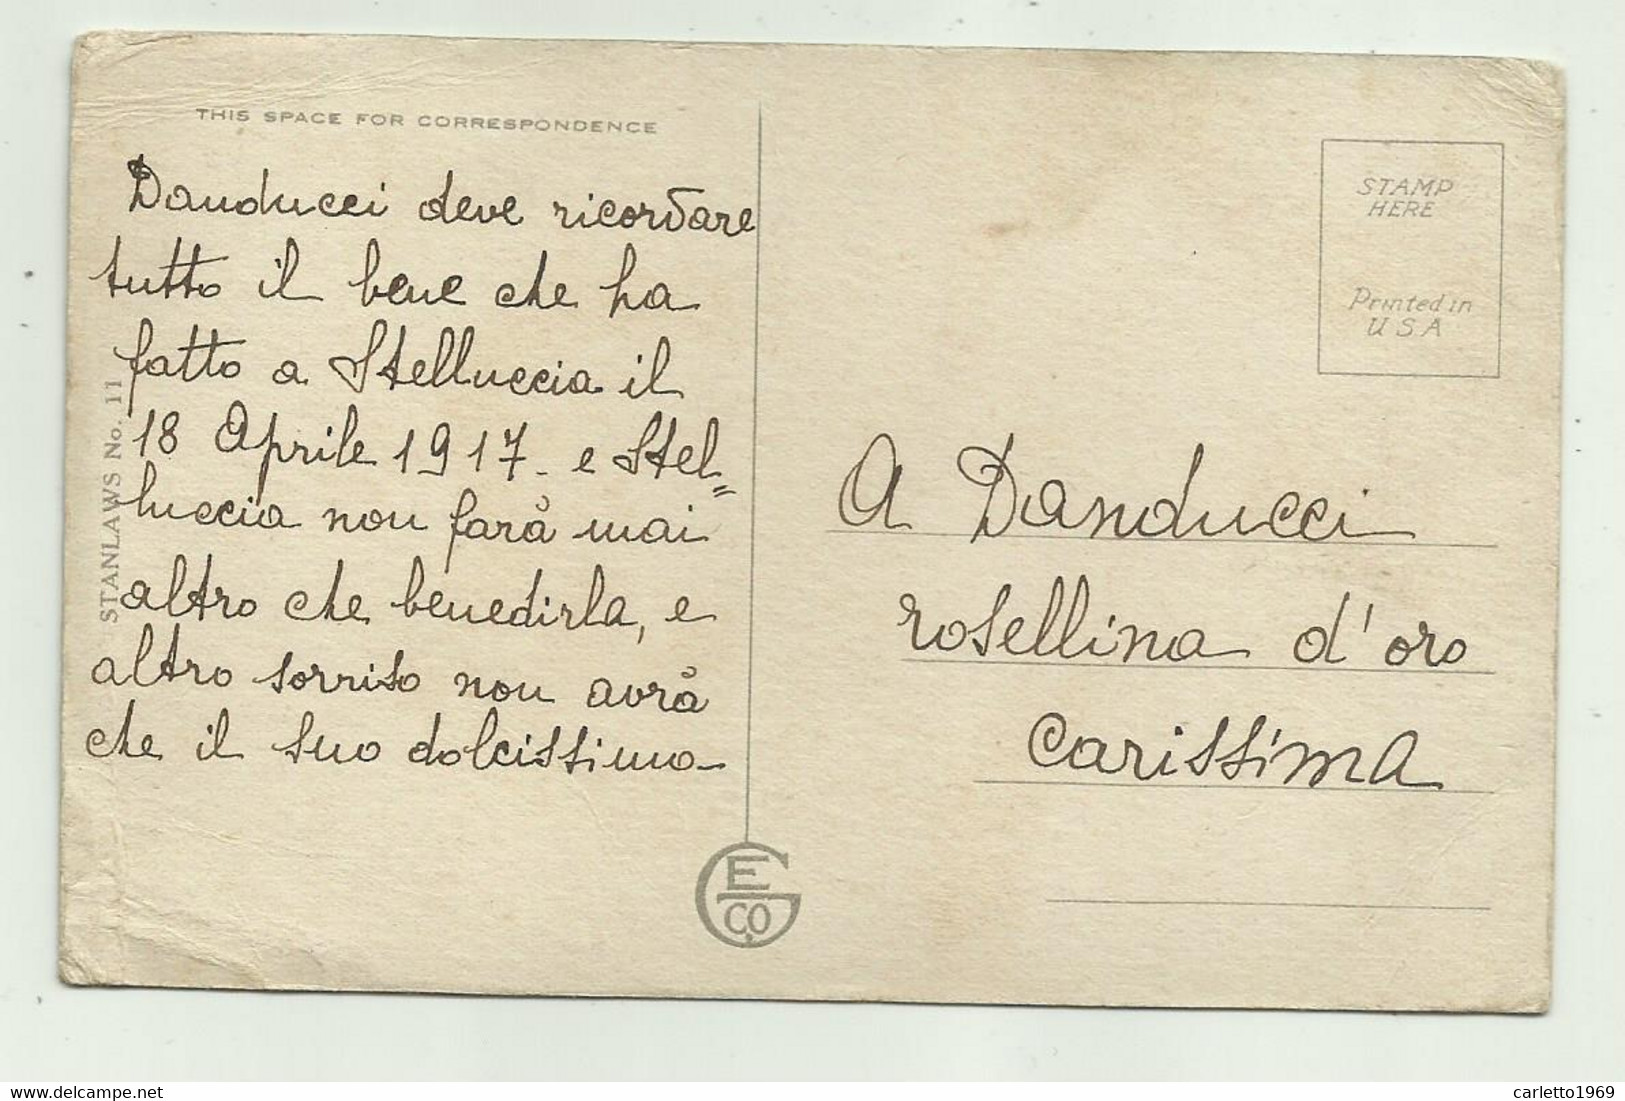 THIS SPACE FOR CORRESPONDENCE
Danducci deve ricordare
tutto il bene che ha
fatto a Stelluccia il
18 Aprile 1917 - e Stel=
luccia non farà mai
altro che benedirla, e
altro sorriso non avrà
che il suo dolcissimo
STANLAWS No. 11
STAMP
HERE
Printed in
U S A
A Danducci
rosellina d'oro
carissima
E
G
CO
www.delcampe.net
carletto1969